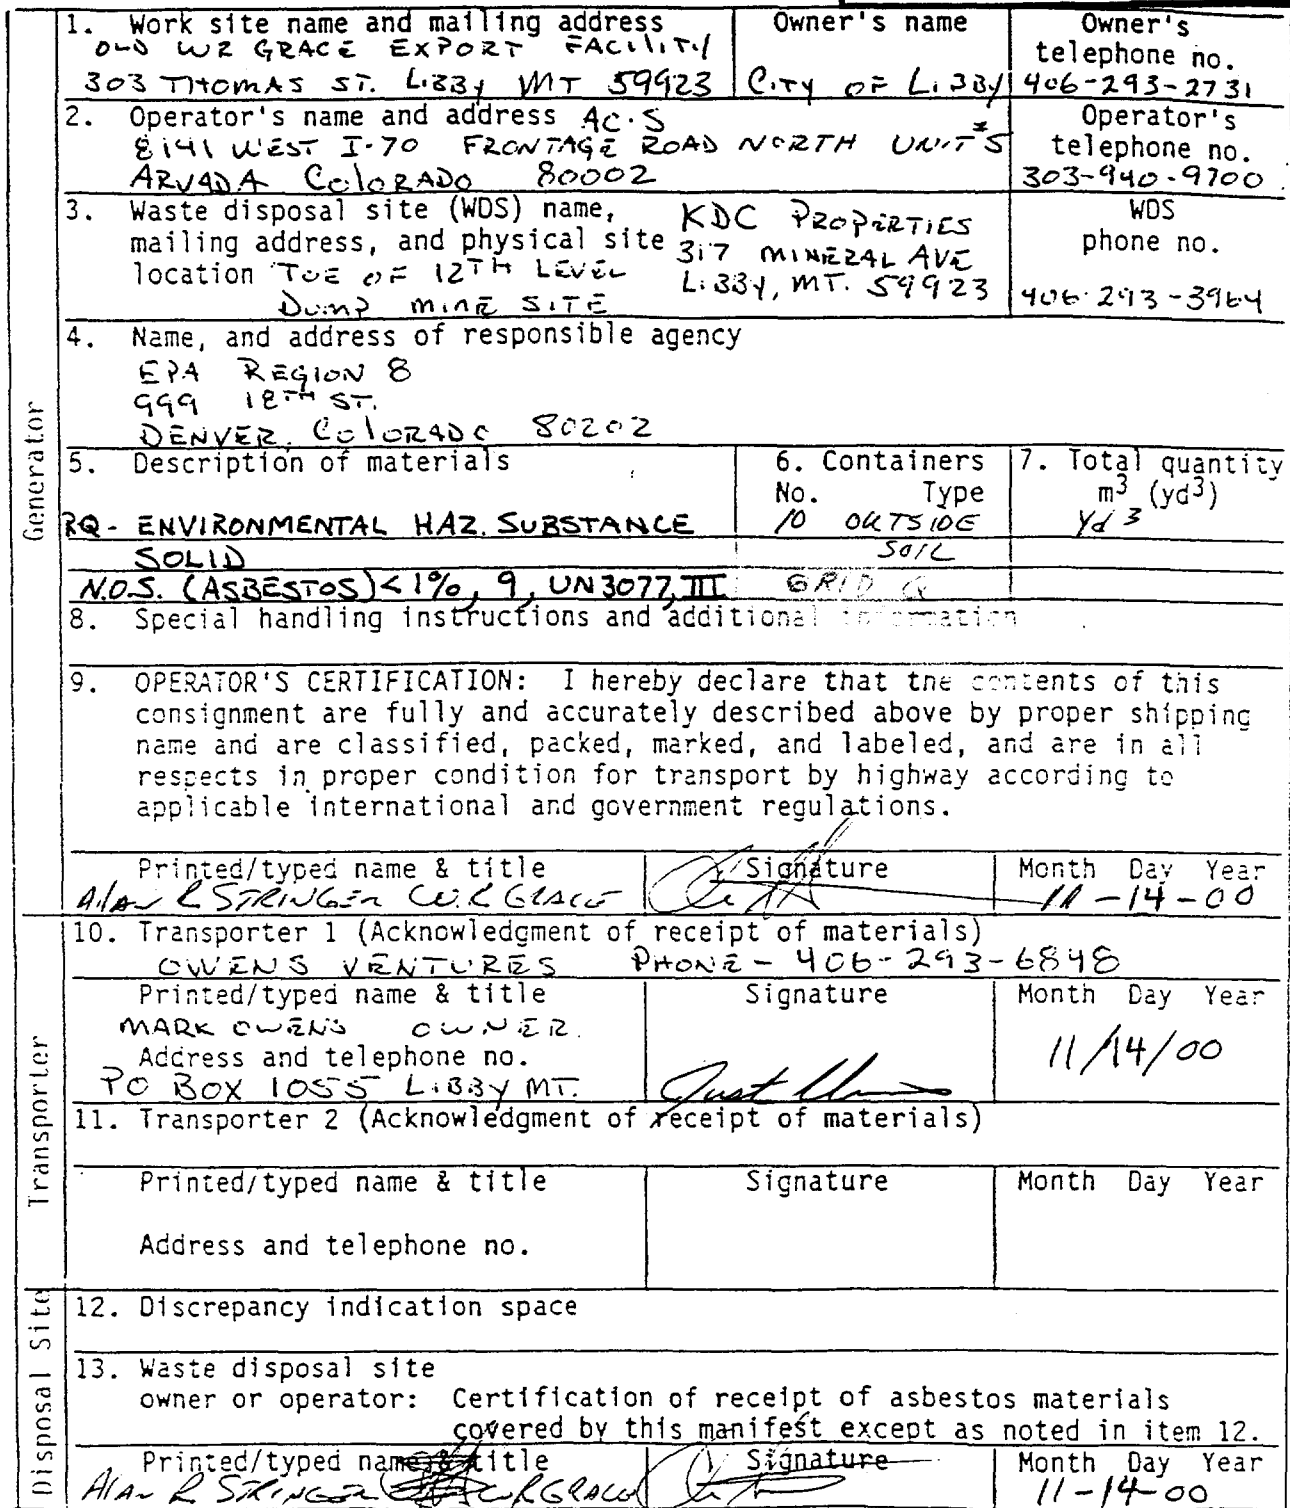 Generator
1. Work site name and mailing address
OLD WR GRACE EXPORT FACILITY
303 THOMAS ST. LIBBY MT 59923
Owner's name
CITY OF LIBBY
Owner's telephone no.
406-293-2731
2. Operator's name and address AC·S
8141 WEST I-70 FRONTAGE ROAD NORTH UNIT #5
ARVADA COLORADO 80002
Operator's telephone no.
303-940-9700
3. Waste disposal site (WDS) name,
mailing address, and physical site
location TOE OF 12TH LEVEL
DUMP MINE SITE
KDC PROPERTIES
317 MINERAL AVE
LIBBY, MT. 59923
WDS
phone no.
406-293-3964
4. Name, and address of responsible agency
EPA REGION 8
999 18TH ST.
DENVER, COLORADO 80202
5. Description of materials
RQ - ENVIRONMENTAL HAZ. SUBSTANCE
SOLID
N.O.S. (ASBESTOS) <1%, 9, UN3077, III
6. Containers
No. Type
10 OUTSIDE
SOIL
GRID
7. Total quantity
m3 (yd3)
Yd3
8. Special handling instructions and additional information
9. OPERATOR'S CERTIFICATION: I hereby declare that the contents of this
consignment are fully and accurately described above by proper shipping
name and are classified, packed, marked, and labeled, and are in all
respects in proper condition for transport by highway according to
applicable international and government regulations.
Printed/typed name & title
Alan R STRINGER W.R GRACE
Signature
Month Day Year
11-14-00
Transporter
10. Transporter 1 (Acknowledgment of receipt of materials)
OWENS VENTURES PHONE - 406-293-6848
Printed/typed name & title
MARK OWENS OWNER
Address and telephone no.
PO BOX 1055 LIBBY MT.
Signature
Month Day Year
11/14/00
11. Transporter 2 (Acknowledgment of receipt of materials)
Printed/typed name & title
Signature
Month Day Year
Address and telephone no.
Disposal Site
12. Discrepancy indication space
13. Waste disposal site
owner or operator: Certification of receipt of asbestos materials
covered by this manifest except as noted in item 12.
Printed/typed name & title
Alan R STRINGER W.R GRACE
Signature
Month Day Year
11-14-00